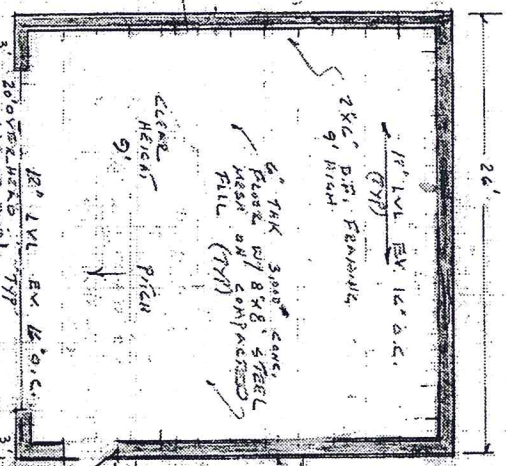 26'
12" LVL EV. 16" O.C.
(TYP)
2X6" D.F. FRAMING
9' HIGH
6" THK 3,000# CONC.
FLOOR W/ 8"X8" STEEL
MESH ON COMPACTED
FILL (TYP)
CLEAR
HEIGHT
9'
PITCH
12" LVL EV. 16" O.C.
20' OVERHEAD
TYP
3'
3'